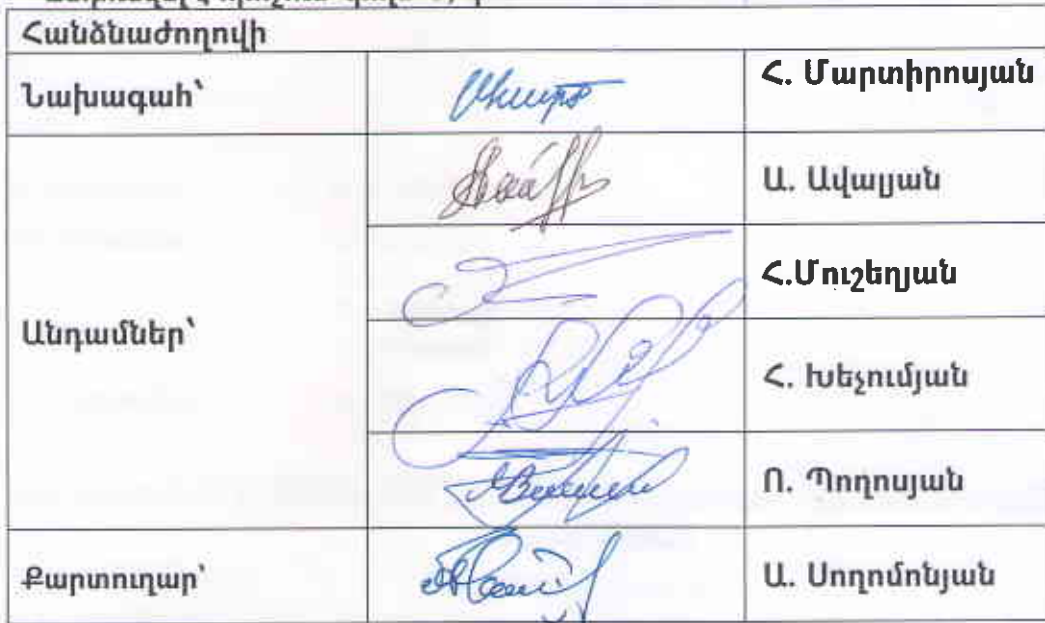 Հանձնաժողովի
Նախագահ՝ Հ. Մարտիրոսյան
Ա. Ավալյան
Հ.Մուշեղյան
Անդամներ՝
Հ. Խեչումյան
Ո. Պողոսյան
Քարտուղար՝ Ա. Սողոմոնյան